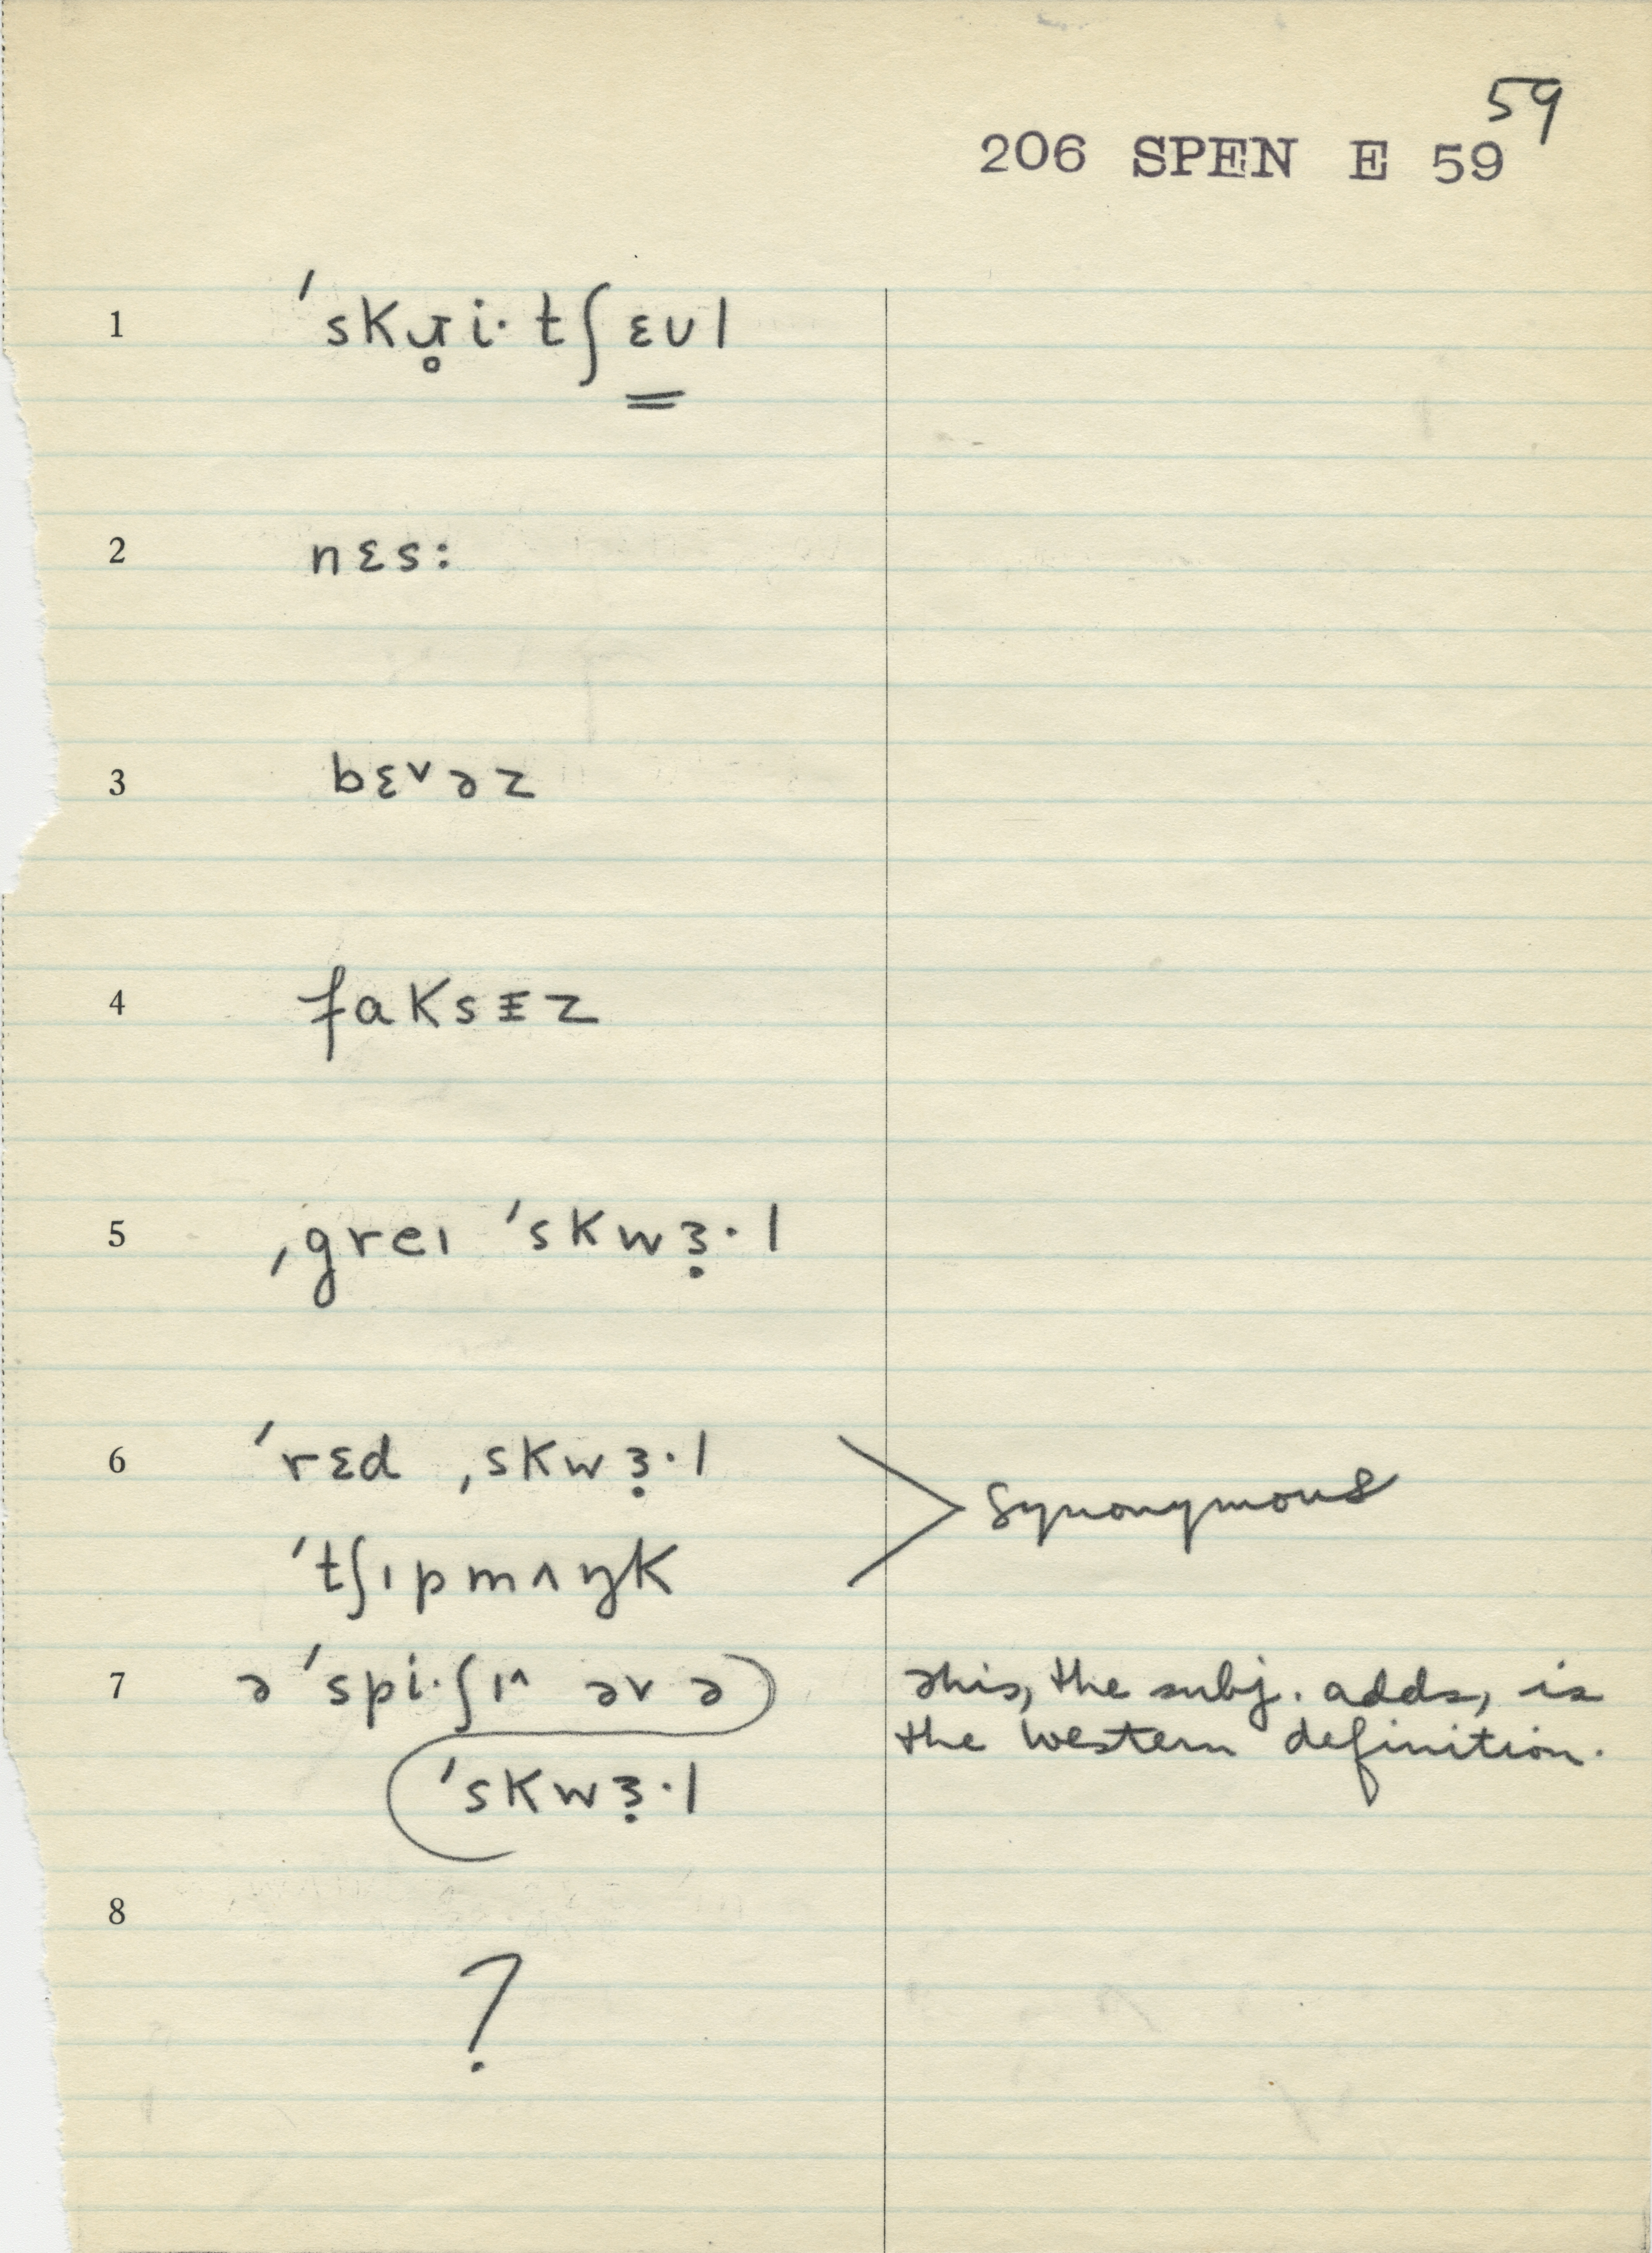 59
206 SPEN E 59
1 ˈskɹ̥i· tʃɛʊl
2 nɛs:
3 bɛ˅əz
4 faksɪz
5 ˌgreɪ ˈskwɜ̣·l
6 ˈrɛd ˌskwɜ̣·l
ˈtʃɪpmʌŋk
synonymous
7 ə ˈspi·ʃɪ^ əv ə
ˈskwɜ̣·l
This, the subj. adds, is
the western definition.
8
?